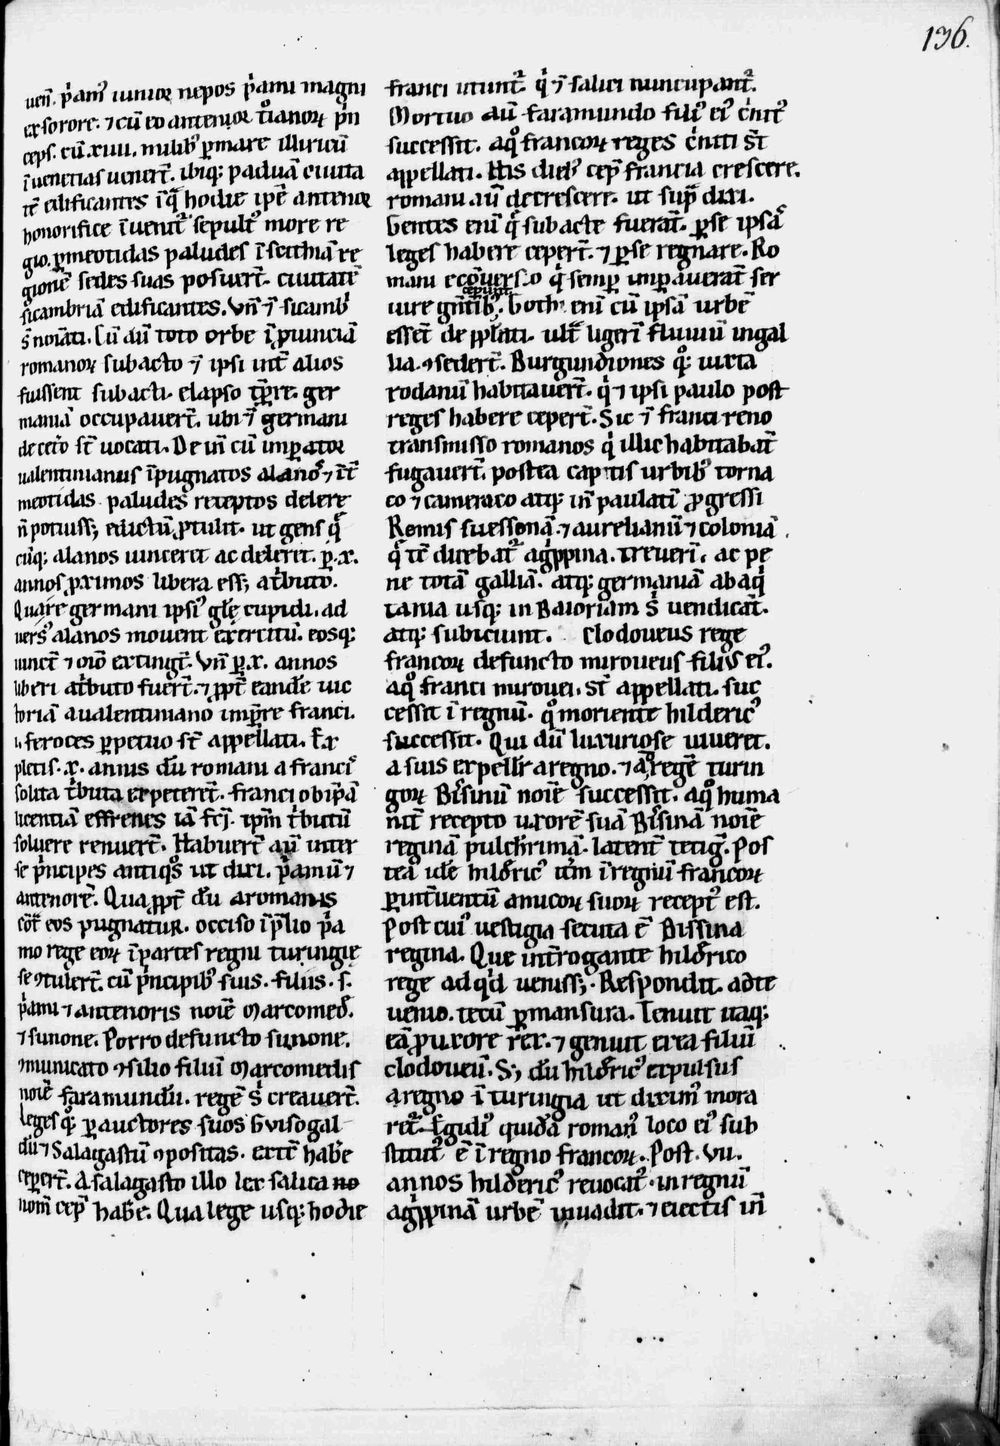 136.
uen̄. p̓am᷒ iunior nepos p̓ami magni
ex sorore. ⁊ cū eo antenor t̓oianoꝝ p̓n
ceps. cū .xiiii. milib᷒ ꝑ mare illiricū
ī uenetias uener̄t. ibiq; paduā ciuita
tē edificantes ī q̄ hodie ip̄e antenor
honorifice īuenit᷒ sepult᷒ more re
gio. ꝑ meotidas paludes ī scithiā re
gionē sedes suas posuer̄t. ciuitatē
sicambriā edificantes. Vn̄ ⁊ sicamb̓
s̄ noīati. Cū aū toto orbe ī ꝓuinciā
romanoꝝ subacto ⁊ ipsi int̄ alios
fuissent subacti. elapso tp̄re. ger
maniā occupauer̄t. ubi ⁊ germani
de cet̓o st̄ uocati. De in̄ cū impator
ualentinianus īpugnatos alanos ⁊ īt̄
meotidas paludes receptos delere
n̄ potuiss; edictū ꝓtulit. ut gens q̄
cūq; alanos uincerit ac delerit. ꝑ .x.
annos ꝓximos libera ess; at̓buto.
Quare germani ipsi᷒ gl̄e cupidi. ad
uers᷒ alanos mouent exercitū. eosq;
uincūt ⁊ oīo extingūt. Vn̄ ꝑ .x. annos
liberi at̓buto fuer̄t. ⁊ ꝓpt̄ eandē uic
toriā a ualentiniano imp̄re franci.
.i. feroces ꝑpetuo st̄ appellati. Ex
pletis .x. annis dū romani a francis
solita t̓buta expeterēt. franci ob īpā
licentiā effrenes iā fc̄i. ip̄m t̓butū
soluere renuer̄t. Habuer̄t aū inter
se p̓ncipes antiq᷒s ut dixi. p̓amū ⁊
antenorē. Qua ꝓpt̄ dū a romanis
cōt̄ eos pugnatur. occiso ī p̄lio p̓a
mo rege eoꝝ ī partes regni turingie
se ꝯtuler̄t. cū p̓ncipib᷒ suis. filiis .s.
p̓ami ⁊ antenoris noīe Marcomed̄.
⁊ sunone. Porro defuncto sunone.
ꝯmunicato ꝯsilio filiū Marcomedis
noīe faramundū. regē s̓ creauer̄t.
leges q᷒; ꝑ auctores suos Guisogal
dū ⁊ Salagastū ꝯpositas. ex tē hab̄e
ceper̄t. A salagasto illo lex salica no
nom̄ cep̄ hab̄e. Qua lege usq; hodie
franci utunt᷒. q̓ ⁊ salici nuncupant᷒.
Mortuo aū faramundo fili᷒ ei᷒ c̓nit᷒
successit. a q᷒ francoꝝ reges c̓niti st̄
appellati. His dieb᷒ cep̄ francia crescere.
romani aū decrescere. ut sup̄ dixi.
Gentes enī q̄ subacte fuerāt. ꝑ se ipsas
leges habere ceper̄t. ⁊ ꝑ se regnare. Ro
mani e cōuerso q̓ semꝑ impauerāt ser
ceperunt
uire gn̄tib᷒. Goth. enī cū ipsā urbē
essēt depp̄lati. ult̄ ligerī fluuiū in gal
lia. ꝯseder̄t. Burgundiones q᷒; iuxta
rodanū habitauer̄t. q̓ ⁊ ipsi paulo post
reges habere ceper̄t. Sic ⁊ franci reno
transmisso romanos q̓ illic habitabāt
fugauer̄t. postea captis urbib᷒ torna
co ⁊ cameraco atq; in̄ paulatī ꝓgressi
Remis suessonā. ⁊ aurelianū ⁊ coloniā
q̄ tē dicebat᷒ ag̓ppina. treuerī. ac pe
ne totā galliā. atq; germaniā ab aq̓
tania usq; in Baioriam s̓ uendicāt.
atq; subiciunt. Clodoueus rege
francoꝝ defuncto miroueus fili᷒ ei᷒.
a q᷒ franci mirouei. st̄ appellati. suc
cessit ī regnū. q᷒ moriente hilderic᷒
successit. Qui dū luxuriose uiueret.
a suis expellit̓ a regno. ⁊ ad regē turin
goꝝ Bisinū noīe successit. a q᷒ huma
nit̄ recepto uxorē suā Bisinā noīe
reginā pulch̓rimā. latent̄ tetig̓. Pos
tea idē hild̓ic᷒ it̓m ī regnū francoꝝ
ꝑ int̓uentū amicoꝝ suoꝝ recept᷒ est.
Post cui᷒ uestigia secuta ē Bissina
regina. Que int̓rogante hild̓rico
rege ad q̓d ueniss;. Respondit. ad te
uenio. tecū ꝑmansura. Tenuit itaq;
eā ꝓ uxore rex. ⁊ genuit ex ea filiū
clodoueū. S; dū hild̓ric᷒ expulsus
a regno ī turingia ut dixim᷒ mora
ret᷒. Egidi᷒ quidā roman᷒ loco ei᷒ sub
stitut᷒ ē ī regno francoꝝ. Post .vii.
annos hilderic᷒ reuocat᷒ in regnū
ag̓ppinā urbē inuadit. ⁊ eiectis in̄